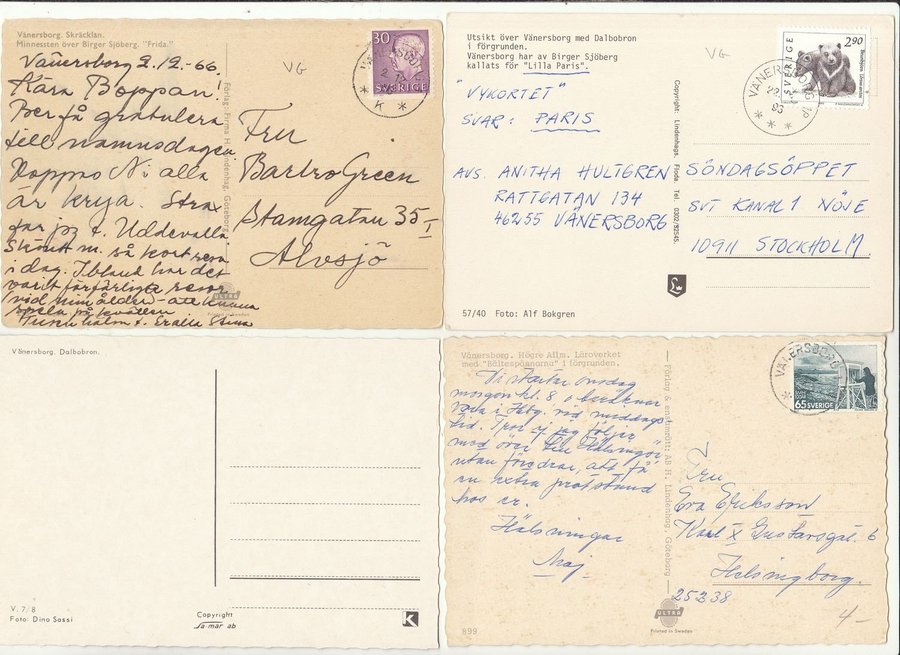 Vänersborg. Skräcklan.
Minnessten över Birger Sjöberg. "Frida."
Vänersborg 2.12-66
Kära Boppan!
Ber få gratulera
till namnsdagen
Hoppas Ni alla
är krya. Strax
far jag t. Uddevalla
Skönt m. så kort resa
i dag. Ibland har det
varit förfärliga resor
vid min ålder – att kunna
spela på kvällen
Förlag: Firma H. Lindenhag, Göteborg
VG
30
SVERIGE
VÄNERSBORG
2.12.6
* K *
Fru
Barbro Green
Stamgatan 35 I
Älvsjö
ULTRA
Printed in Sweden
Utsikt över Vänersborg med Dalbobron
i förgrunden.
Vänersborg har av Birger Sjöberg
kallats för "Lilla Paris".
VG
SVERIGE
2.90
VÄNERSBORG
93
"VYKORTET"
SVAR: PARIS
AVS. ANITHA HULTGREN
RATTGATAN 134
46255 VÄNERSBORG
Copyright: Lindenhags. Floda Tel. 0302/32545.
SÖNDAGSÖPPET
SVT KANAL 1 NÖJE
10911 STOCKHOLM
57/40 Foto: Alf Bokgren
Vänersborg. Dalbobron.
V. 7/8
Foto: Dino Sassi
Copyright
Sa-mär ab
K
Vänersborg. Högre Allm. Läroverket
med "Bältespännarna" i förgrunden.
Vi startar onsdag
morgon kl. 8 o beräknar
vara i Hbg. vid middags-
tid. Tror ej jag följer
med över till Helsingör
utan föredrar, att få
en extra pratstund
hos er.
Hälsningar
Maj.
Förlag & ensamrätt: AB H. Lindenhag, Göteborg
VÄNERSBORG
65 SVERIGE
Fru
Eva Eriksson
Karl X Gustavsgat. 6
Helsingborg.
25238
4-
899
ULTRA
Printed in Sweden